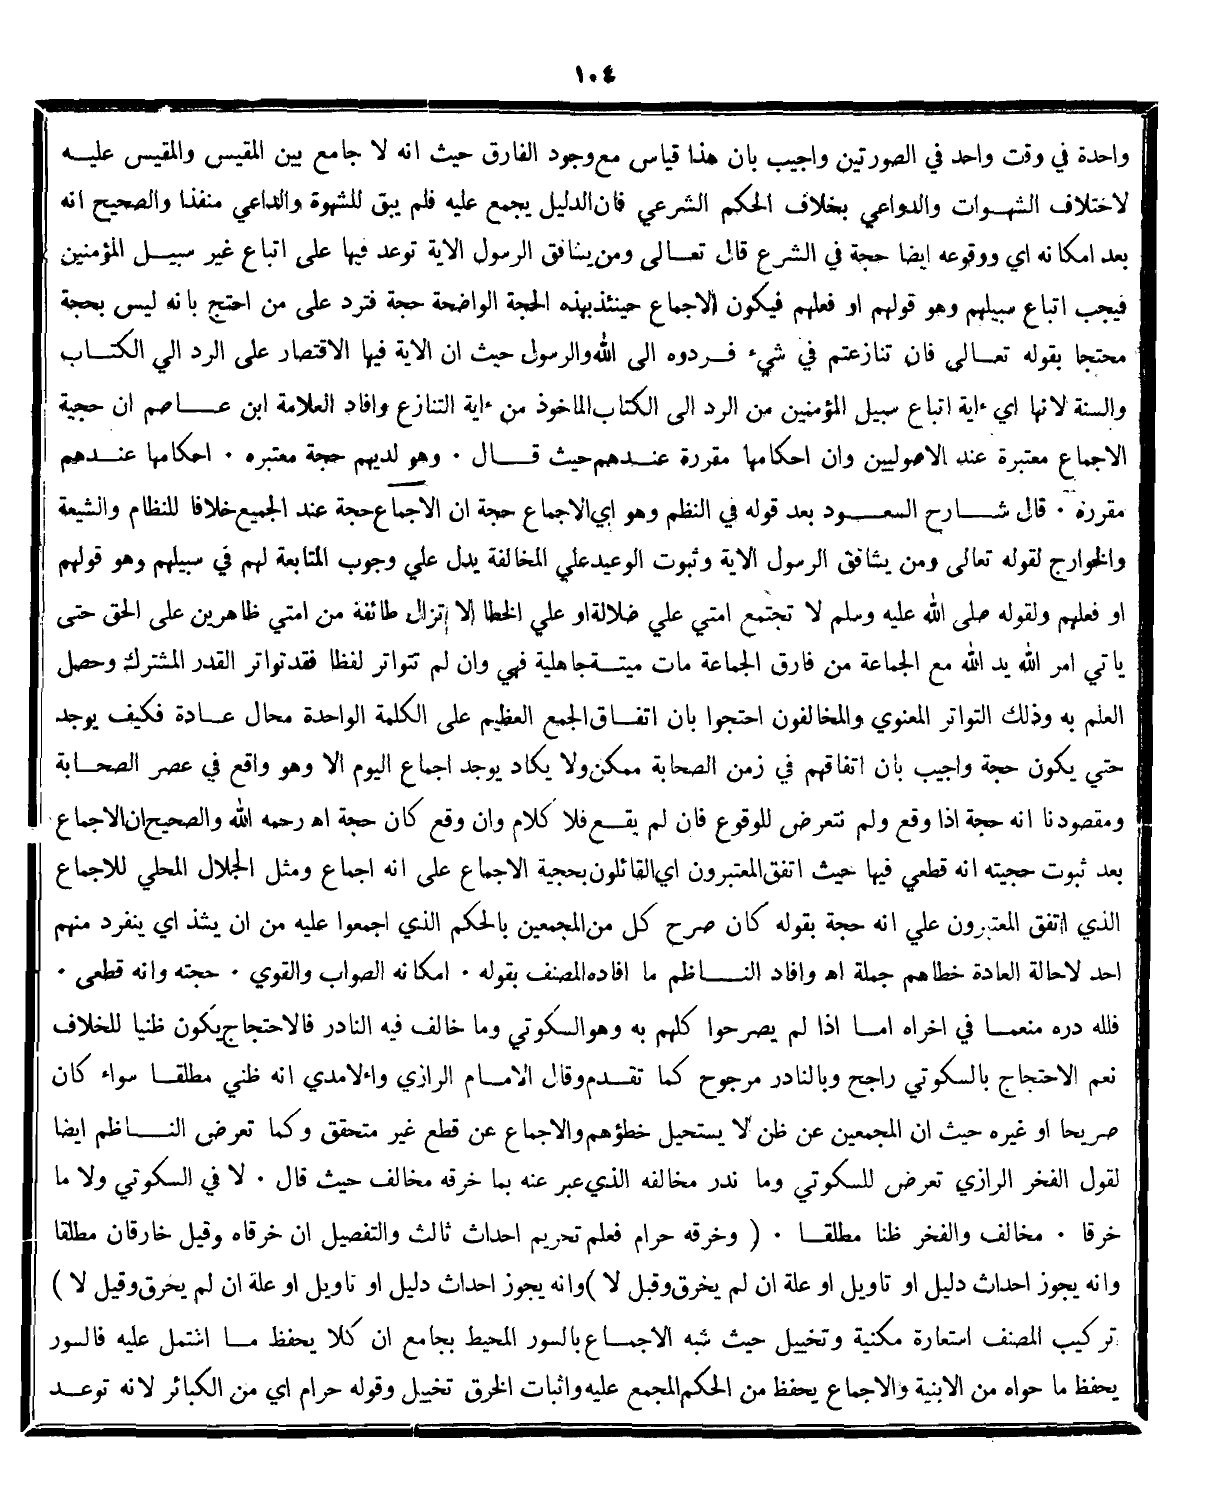 ١٠٤
واحدة في وقت واحد في الصورتين واجيب بان هذا قياس مع وجود الفارق حيث انه لا جامع بين المقيس والمقيس عليه
لاختلاف الشهوات والدواعي بخلاف الحكم الشرعي فان الدليل يجمع عليه فلم يبق للشهوة والداعي منفذا والصحيح انه
بعد امكانه اي ووقوعه ايضا حجة في الشرع قال تعالى ومن يشاقق الرسول الاية توعد فيها على اتباع غير سبيل المؤمنين
فيجب اتباع سبيلهم وهو قولهم او فعلهم فيكون الاجماع حينئذ بهذه الحجة الواضحة حجة فترد على من احتج بانه ليس بحجة
محتجا بقوله تعالى فان تنازعتم في شيء فردوه الى الله والرسول حيث ان الاية فيها الاقتصار على الرد الي الكتاب
والسنة لانها اي ءاية اتباع سبيل المؤمنين من الرد الى الكتاب الماخوذ من ءاية التنازع وافاد العلامة ابن عاصم ان حجية
الاجماع معتبرة عند الاصوليين وان احكامها مقررة عندهم حيث قال ٠ وهو لديهم حجة معتبره ٠ احكامها عندهم
مقررة ٠ قال شارح السعود بعد قوله في النظم وهو اي الاجماع حجة ان الاجماع حجة عند الجميع خلافا للنظام والشيعة
والخوارج لقوله تعالى ومن يشاقق الرسول الاية وثبوت الوعيد علي المخالفة يدل علي وجوب المتابعة لهم في سبيلهم وهو قولهم
او فعلهم ولقوله صلى الله عليه وسلم لا تجتمع امتي علي ضلالة او علي الخطا لا تزال طائفة من امتي ظاهرين على الحق حتى
ياتي امر الله يد الله مع الجماعة من فارق الجماعة مات ميتة جاهلية فهي وان لم تتواتر لفظا فقد تواتر القدر المشترك وحصل
العلم به وذلك التواتر المعنوي والمخالفون احتجوا بان اتفاق الجمع العظيم على الكلمة الواحدة محال عادة فكيف يوجد
حتي يكون حجة واجيب بان اتفاقهم في زمن الصحابة ممكن ولا يكاد يوجد اجماع اليوم الا وهو واقع في عصر الصحابة
ومقصودنا انه حجة اذا وقع ولم نتعرض للوقوع فان لم يقع فلا كلام وان وقع كان حجة اه رحمه الله والصحيح ان الاجماع
بعد ثبوت حجيته انه قطعي فيها حيث اتفق المعتبرون اي القائلون بحجية الاجماع على انه اجماع ومثل الجلال المحلي للاجماع
الذي اتفق المعتبرون علي انه حجة بقوله كان صرح كل من المجمعين بالحكم الذي اجمعوا عليه من ان يشذ اي ينفرد منهم
احد لاحالة العادة خطاهم جملة اه وافاد الناظم ما افاده المصنف بقوله ٠ امكانه الصواب والقوي ٠ حجته وانه قطعى ٠
فلله دره منعما في اخراه اما اذا لم يصرحوا كلهم به وهو السكوتي وما خالف فيه النادر فالاحتجاج يكون ظنيا للخلاف
نعم الاحتجاج بالسكوتي راجح وبالنادر مرجوح كما تقدم وقال الامام الرازي والامدي انه ظني مطلقا سواء كان
صريحا او غيره حيث ان المجمعين عن ظن لا يستحيل خطؤهم والاجماع عن قطع غير متحقق وكما تعرض الناظم ايضا
لقول الفخر الرازي تعرض للسكوتي وما ندر مخالفه الذي عبر عنه بما خرقه مخالف حيث قال ٠ لا في السكوتي ولا ما
خرقا ٠ مخالف والفخر ظنا مطلقا ٠ ( وخرقه حرام فعلم تحريم احداث ثالث والتفصيل ان خرقاه وقيل خارقان مطلقا
وانه يجوز احداث دليل او تاويل او علة ان لم يخرق وقيل لا ) وانه يجوز احداث دليل او تاويل او علة ان لم يخرق وقيل لا )
تركيب المصنف استعارة مكنية وتخييل حيث شبه الاجماع بالسور المحيط بجامع ان كلا يحفظ ما اشتمل عليه فالسور
يحفظ ما حواه من الابنية والاجماع يحفظ من الحكم المجمع عليه واثبات الخرق تخييل وقوله حرام اي من الكبائر لانه توعد